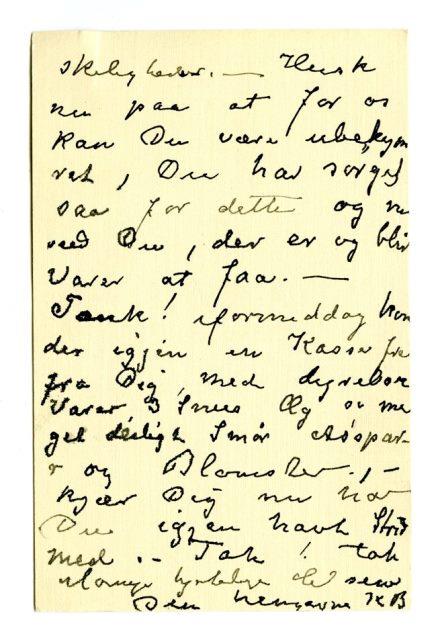 skeligheder. — Husk
nu paa at for os
kan Du være ubekym
ret, Du har sørget
saa for dette og nu
ved Du, der er og blir
Varer at faa. —
Tænk! iformiddag kom
der igjen en Kasse fra
fra Dig, med dyrebare
Varer, 3 Snees Æg
get deiligt Smør Aspar-
og Blomster., —
kjær Dig nu har
Du igjen havt Strid
med. – Tak! tak
mange hjertelige
Din hengivne